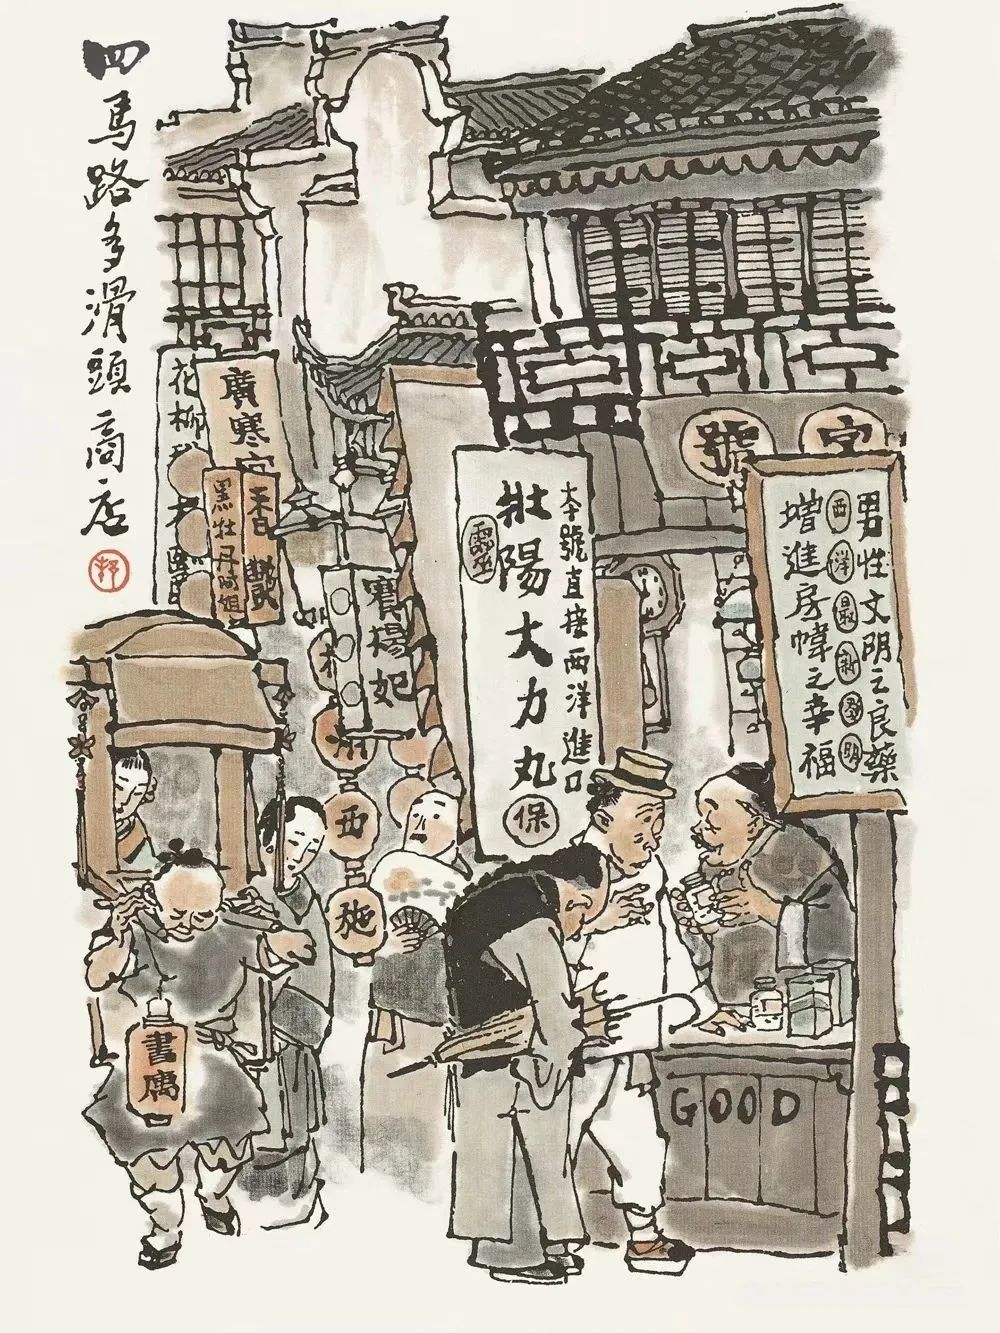 四馬路多滑頭商店
花柳
廣寒宮
黑牡丹
賽楊妃
西
施
書寓
壯陽大力丸
靈
保
本號直接西洋進口
號
宮
男性文明之良藥
西洋最新發明
增進房幃之幸福
GOOD